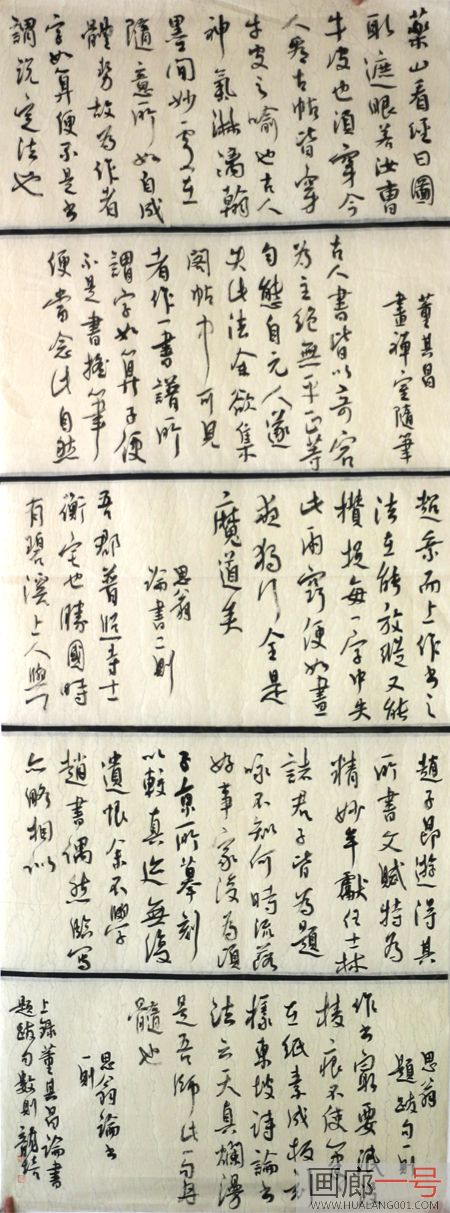 藥山看經曰圖
取遮眼若汝曹
牛皮也須穿今
人看古帖皆穿
牛皮之喻也古人
神氣淋漓翰
墨間妙處在
隨意所如自成
體勢故為作者
字如算便不是書
謂說定法也
董其昌
畫禪室隨筆
古人書皆以奇宕
為主絕無平正等
勻態自元人遂
失此法余欲集
閣帖中可見
者作一書譜所
謂字如算子便
不是書握筆
便當念此自然
超乘而上作書之
法在能放縱又能
攢捉每一字中失
此兩竅便如晝
夜獨行全是
魔道矣
思翁
論書二則
吾郡普照寺士
衡宅也勝國時
有碧溪上人與
趙子昂遊得其
所書文賦特為
精妙牟獻仕士林
諸君子皆為題
咏不知何時流落
好事家後為項
子京所摹刻
以較真迹無復
遺恨余不學
趙書偶然臨寫
亦略相似
思翁
題跋句一則
作書最要泯
稜痕不使筆
在紙素成板刻
樣東坡詩論書
法云天真爛漫
是吾師此一句丹
髓也
思翁論書
一則
上錄董其昌論書
題跋句數則
画廊一号
WWW.HUALANG001.COM